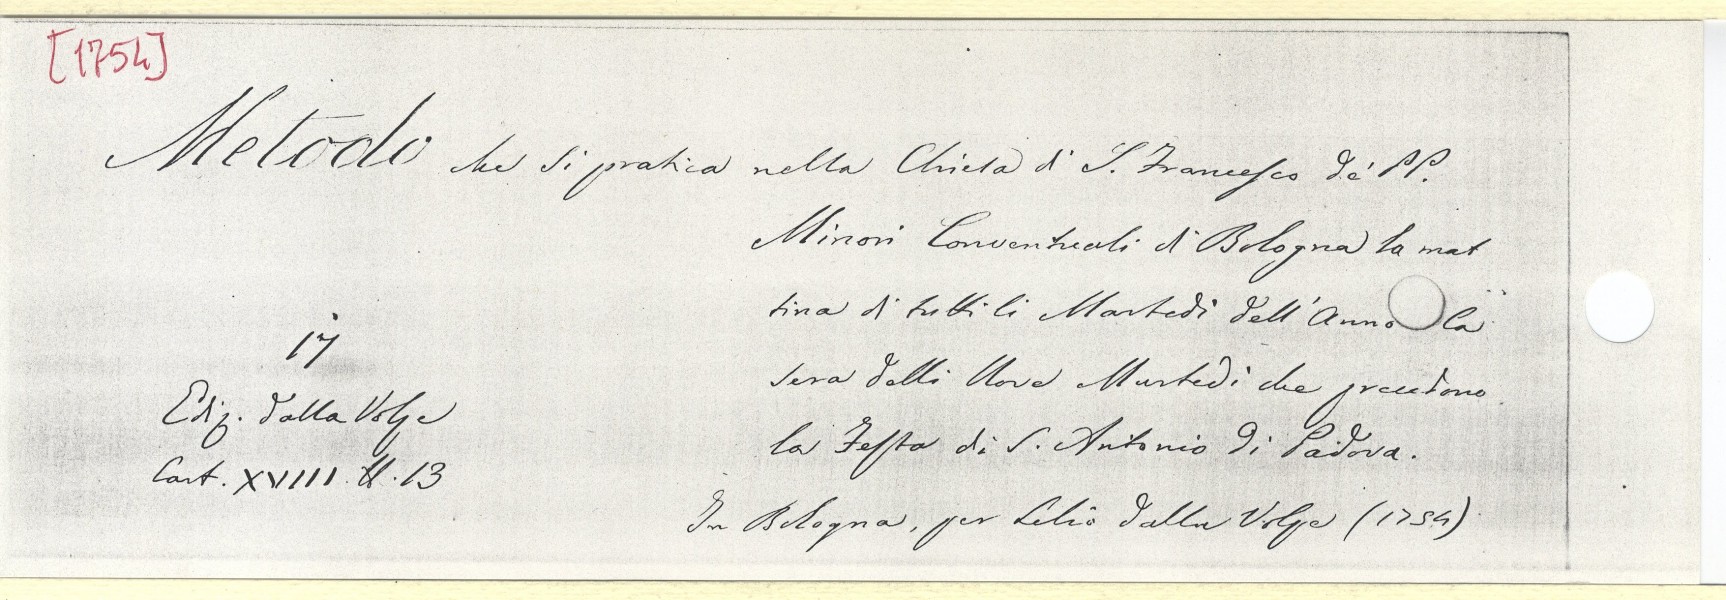 [1754]
Metodo che si pratica nella Chiesa di S. Francesco de' PP.
Minori Conventuali di Bologna la mat
tina di tutti li Martedì dell'Anno la
sera delli Nove Martedì che precedono
la Festa di S. Antonio di Padova.
In Bologna, per Lelio dalla Volpe (1754)
17
Ediz. dalla Volpe
Cart. XVIII. N. 13